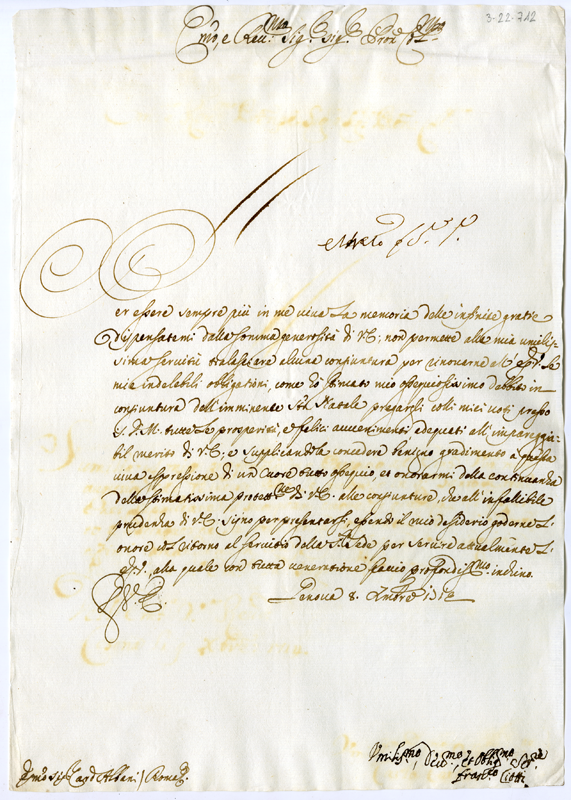 3-22-712
Em.o e Rev.mo Sig.r Sig.r Pron
er essere sempre più in me viva la memoria delle infinite gratie
dispensatemi dalla somma generosità di V.E.; non permette alla mia umilis-
sima servitù tralasciare alcuna congiuntura per rinovarne al
mie indelebili obligationi, come hò stimato mio ossequiosissimo debbito in
congiuntura dell'imminente S.to Natale presarli colli miei voti presso
S.D.M. tutte le prosperità, e felici avvenimenti adequati all'impareggia-
bil merito di V.E. e supplicandola concedere benigno gradimento a questa
viva espressione di un Cuore tutto ossequio, et onorarmi della continuanza
della stimatissima protett.ne di V.E. alle congiunture, che all'infallibile
prudenza di V.E. siano per presentarsi, essendo il mio desiderio goderne l'
onore col ritorno al servitio della S.ta Sede per servire attualmente l'
alla quale con tutta veneratione faccio profondiss.mo inchino.
Di V.E.
Genova 8. Xmbre 1712
Umiliss.mo Div.mo et Oblig.mo Ser.re
Fran.co Ciotti
Em.o Sig. Card Albani / Roma